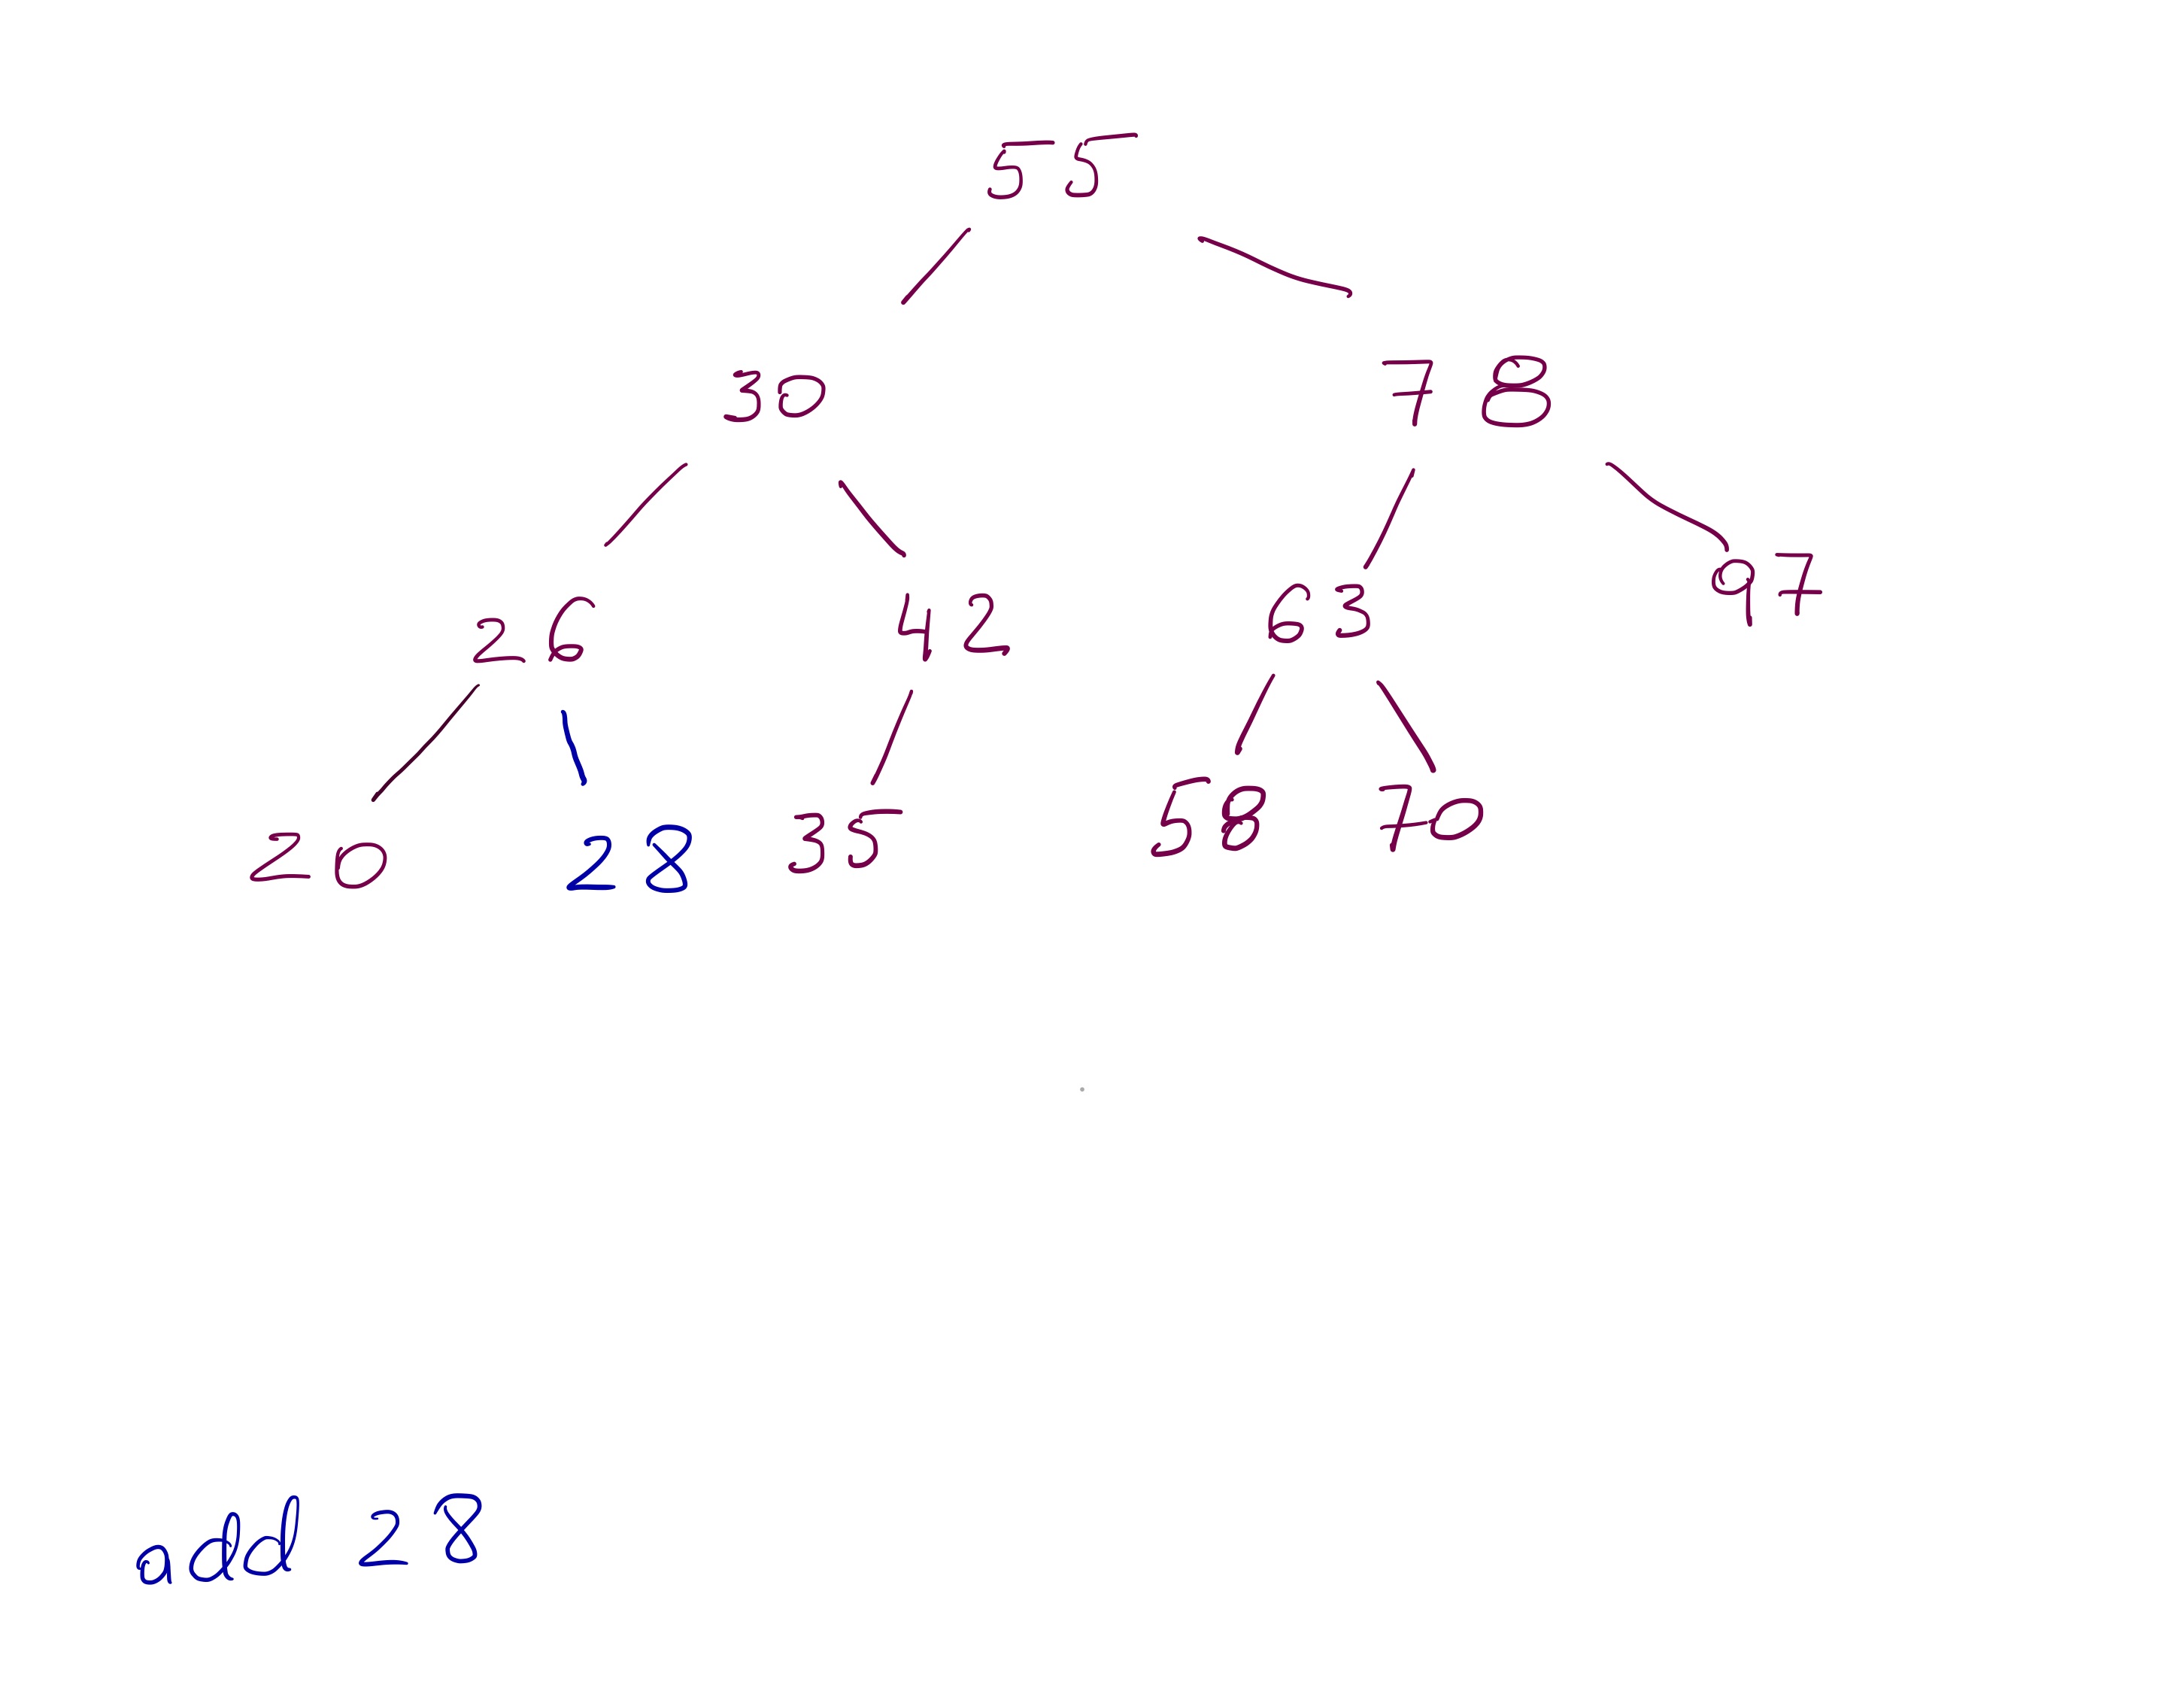 55
30 78
26 42 63 97
20 28 35 58 70
add 28